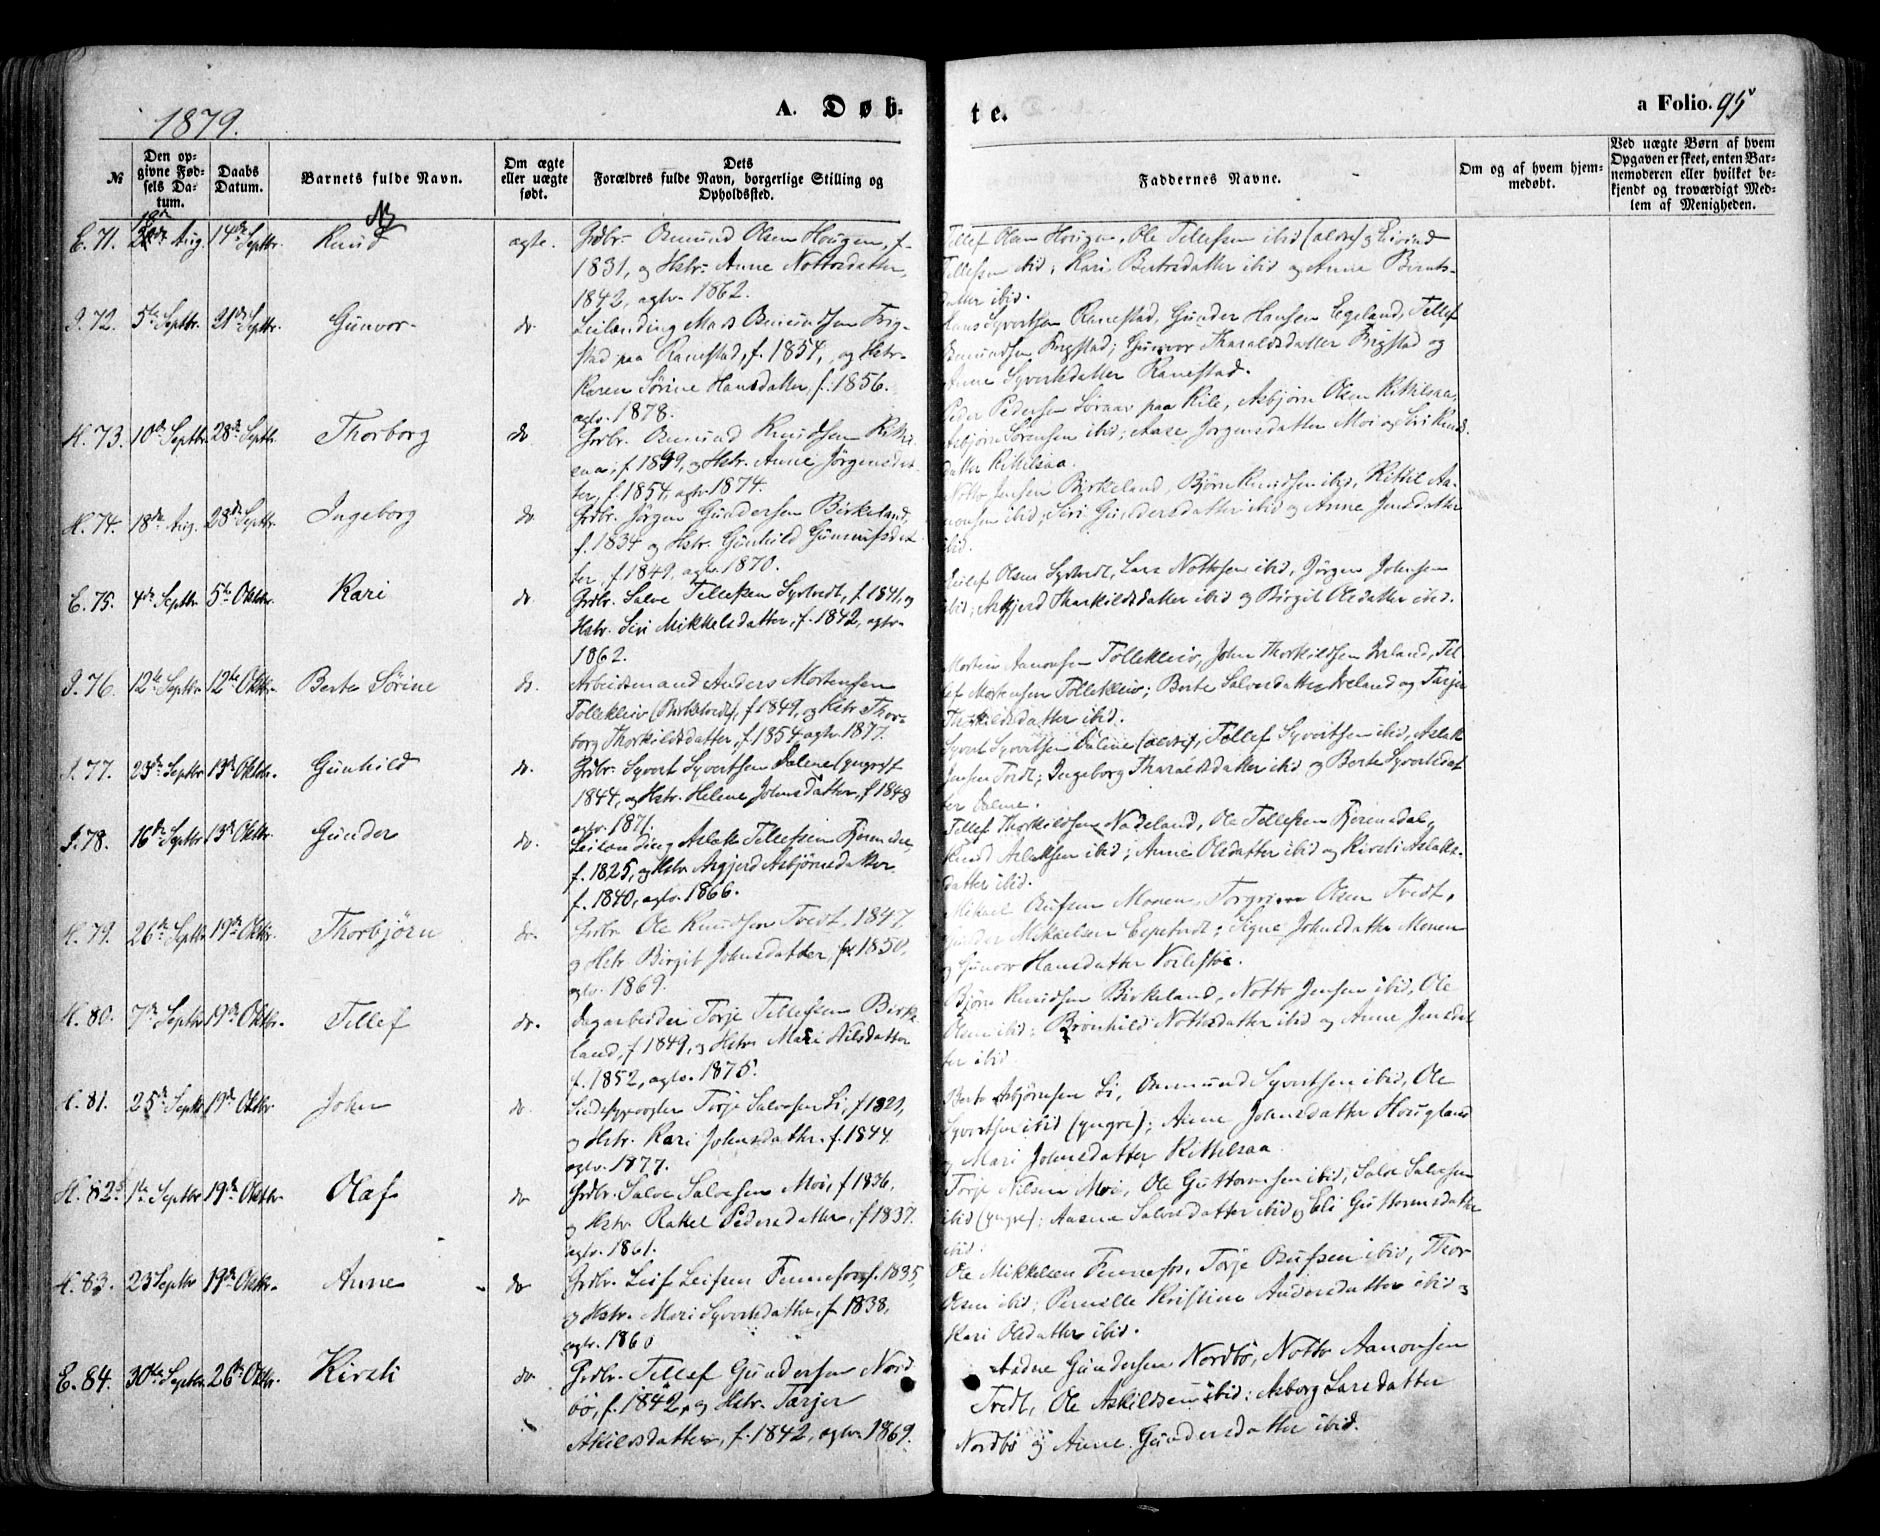 1879.
A. Døb-
te.
a Folio. 95
№
Den op-
givne Fød-
sels Da-
tum.
Daabs
Datum.
Barnets fulde Navn.
Om ægte
eller uægte
født.
Dets
Forældres fulde Navn, borgerlige Stilling og
Opholdssted.
Faddernes Navne.
Om og af hvem hjem-
medøbt.
Ved uægte Børn af hvem
Opgaven er skeet, enten Bar-
nemoderen eller hvilket be-
kjendt og troværdigt Med-
lem af Menigheden.
E. 71. 18de Aug. 14de Septbr. Knud ægte. Grdbr. Osmund Olsen Hougen, f.
1831, og Hstr. Anne Nottosdatter,
1842, agtv. 1862.
Tellef Olsen Hougen, Ole Tellefsen ibid (ældre) og Eivind
Tellefsen ibid; Kari Bertosdatter ibid og Anne
datter ibid.
I. 72. 5te Septbr. 21de Septbr. Gunvor do. Leilænding Mads Osmundsen Frig-
stad paa Ranestad, f. 1854, og Hstr.
Karen Sørine Hansdatter, f. 1856.
agtv. 1878.
Hans Syvertsen Ranestad, Gunder Hansen Egeland, Tellef
Osmundsen Frigstad; Gunvor Tharaldsdatter Frigstad og
Anne Syvertsdatter Ranestad.
H. 73. 10de Septbr. 28de Septbr. Thorborg do Grdbr. Osmund Knudsen Kittel-
saa, f. 1849, og Hstr. Anne Jørgensdat-
ter, f. 1854, agtv. 1874.
Peder Pedersen Søraas paa Kile, Asbjørn Olsen Kittilsaa,
Asbjørn Sørensen ibid; Aase Jørgensdatter Moi og Siri Knuds-
datter Kittelsaa.
H. 74. 18de Aug. 28de Septbr. Ingeborg do. Grdbr. Jørgen Gundersen Birkeland,
f. 1834 og Hstr. Gunhild Gunnufsdat-
ter, f. 1849, agtv. 1870.
Notto Jensen Birkeland, Bjørn Knudsen ibid, Kittil Aa-
nonsen ibid; Siri Gundersdatter ibid og Anne Jensdatter
ibid.
E. 75. 4de Septbr 5te Oktbr. Kari do. Grdbr. Salve Tellefsen Systvedt, f. 1841, og
Hstr. Siri Mikkelsdatter, f. 1842, agtv.
1862.
Olsen Systvedt, Lars Nottosen ibid, Jørgen Johnsen
ibid; Askjerd Tharkildsdatter ibid og Birgit Olsdatter ibid.
I. 76. 12te Septbr 12te Oktbr. Berte Sørine do. Arbeidsmand Anders Mortensen
Tollekleiv, f. 1849, og Hstr Thor-
borg Thorkildsdatter, f. 1854 agtv 1877.
Morten Aanonsen Tollekleiv, John Thorkildsen Iveland, Til-
lef Mortensen Tollekleiv; Berte Salvesdatter Iveland og Tarjer
Thorkildsdatter ibid.
I. 77. Septbr 13de Oktbr. Gunhild do. Grdbr. Syvert Syvertsen Dalene (yngre) f.
1844, og Hstr. Helene Johnsdatter, f 1848
agtv. 1871.
Syvert Syvertsen Dalene (ældre), Tellef Syvertsen ibid, Aslak
Jensen Tvedt; Ingeborg Tharaldsdatter ibid og Berte Syvertsdat-
ter Dalene.
I. 78. 16de Septbr 13de Oktbr. Gunder do. Leilænding Aslak Tellefsen
f. 1825, og Hstr Asgjerd Asbjørnsdatter
f. 1840, agtv. 1866.
Tellef Thorkildsen Nadeland, Ole Tellefsen
Knud Aslaksen ibid; Anne Olsdatter ibid og Kirsti Aslaks-
datter ibid.
H. 79. 26de Septbr 19de Oktbr. Thorbjørn do. Grdbr. Ole Knudsen Tvedt, 1847
og Hstr. Birgit Johnsdatter, f. 1850,
agtv. 1869.
Mikael Monen, Torgrim Olsen Tvedt,
Gunder Mikaelsen Espetvedt; Signe Johnsdatter Monen
og Gunvor Hansdatter
H. 80. 7de Septbr 19de Oktbr. Tellef do. Dagarbeider Torje Tellefsen Birke-
land, f. 1849, og Hstr Mari Nilsdatter
f. 1852, agtv. 1875.
Bjørn Knudsen Birkeland, Notto Jensen ibid, Ole
Olsen ibid; Brønhild Nottosdatter ibid og Anne Jensdat-
ter ibid.
H. 81. 25de Septbr 19de Oktbr John do. Torje Salvesen Li, f 1821,
og Hstr. Kari Johnsdatter. f. 1844.
agtv. 1877.
Berto Asbjørnsen Li, Osmund Syvertsen ibid, Ole
Syvertsen ibid (yngre); Anne Johnsdatter Hougland
og Mari Johnsdatter Kittilsaa.
H. 82. 1ste Septbr 19de Oktbr Olaf do Grdbr. Salve Salvesen Moi, f 1836,
og Hstr. Rakel Pedersdatter, f. 1837.
agtv. 1861.
Torje Nilsen Moi, Ole Guttormsen ibid, Salve Salvesen
ibid (yngre); Aasne Salvesdatter ibid og Eli Guttormsdatter
ibid.
H. 83. 23 Septbr 19de Oktbr. Anne do Grdbr. Leif Leifsen Fennefos, f. 1835,
og Hstr. Mari Syvertsdatter. f. 1838.
agtv. 1860
Ole Mikkelsen Fennefos, Torje ibid, Thor
Olsen ibid; Pernille Kristine Andersdatter ibid og
Kari Olsdatter ibid.
E. 84. 30te Septbr. 26de Oktbr. Kirsti do Grdbr. Tellef Gundersen Nord-
bø, f. 1842, og Hstr. Tarjer
Askildsdatter, f. 1842, agtv. 1869.
Aadne Gundersen Nordbø, Notto Aanonsen
Tvedt, Ole Askildsen ibid; Asborg Larsdatter
Nordbø og Anne Gundersdatter ibid.